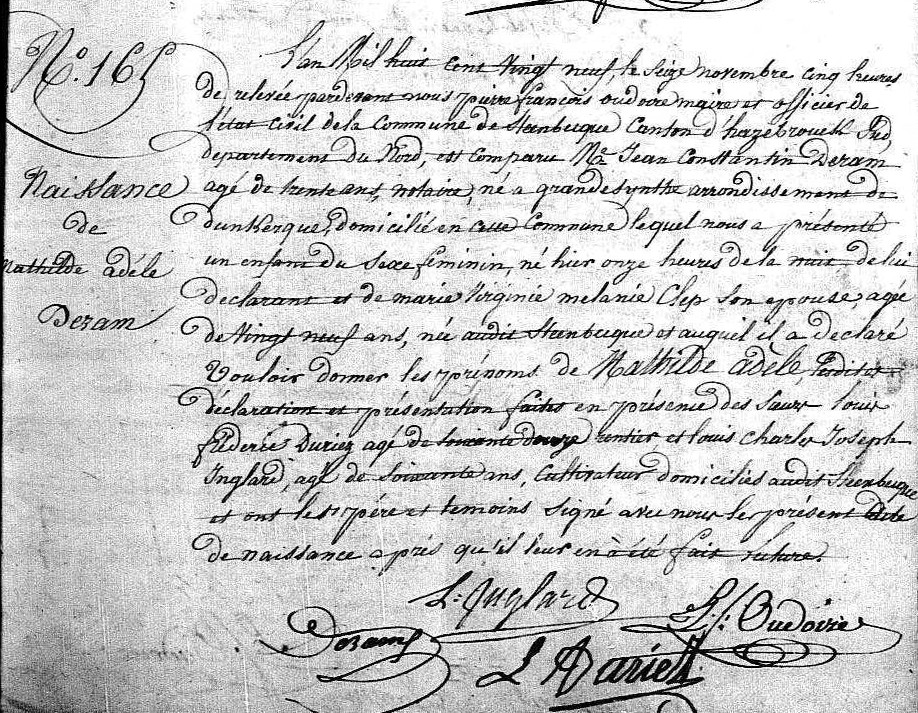 N.º 165
Naissance
de
Mathilde adèle
Deram
L'an Mil huit cent Vingt neuf, le Seize novembre cinq heures
de relevée pardevant nous pierre françois oudoire maire et officier de
l'état civil de la Commune de Steenbecque Canton d'hazebrouck
departement du Nord, est comparu Me Jean Constantin Deram
agé de trente ans, notaire, né a grande Synthe arrondissement de
dunkerque, domicilié en cette Commune lequel nous a présenté
un enfant du Sexe feminin, né hier onze heures de la nuit, de lui
declarant et de marie Virginie melanie Clep Son epouse, agée
de Vingt neuf ans, née audit Steenbecque et auquel il a declaré
Vouloir donner les prénoms de Mathilde adèle, lesdites
déclaration et présentation faites en présence des Sieurs louis
fréderic Duriez agé de soixante douze rentier et louis Charles Joseph
Inglard, agé de Soixante ans, Cultivateur domiciliés audit Steenbecque
et ont les père et temoins signé avec nous le présent acte
de naissance après qu'il leur en a été fait lecture.
L. Inglard
Deram
Oudoire
L Duriez